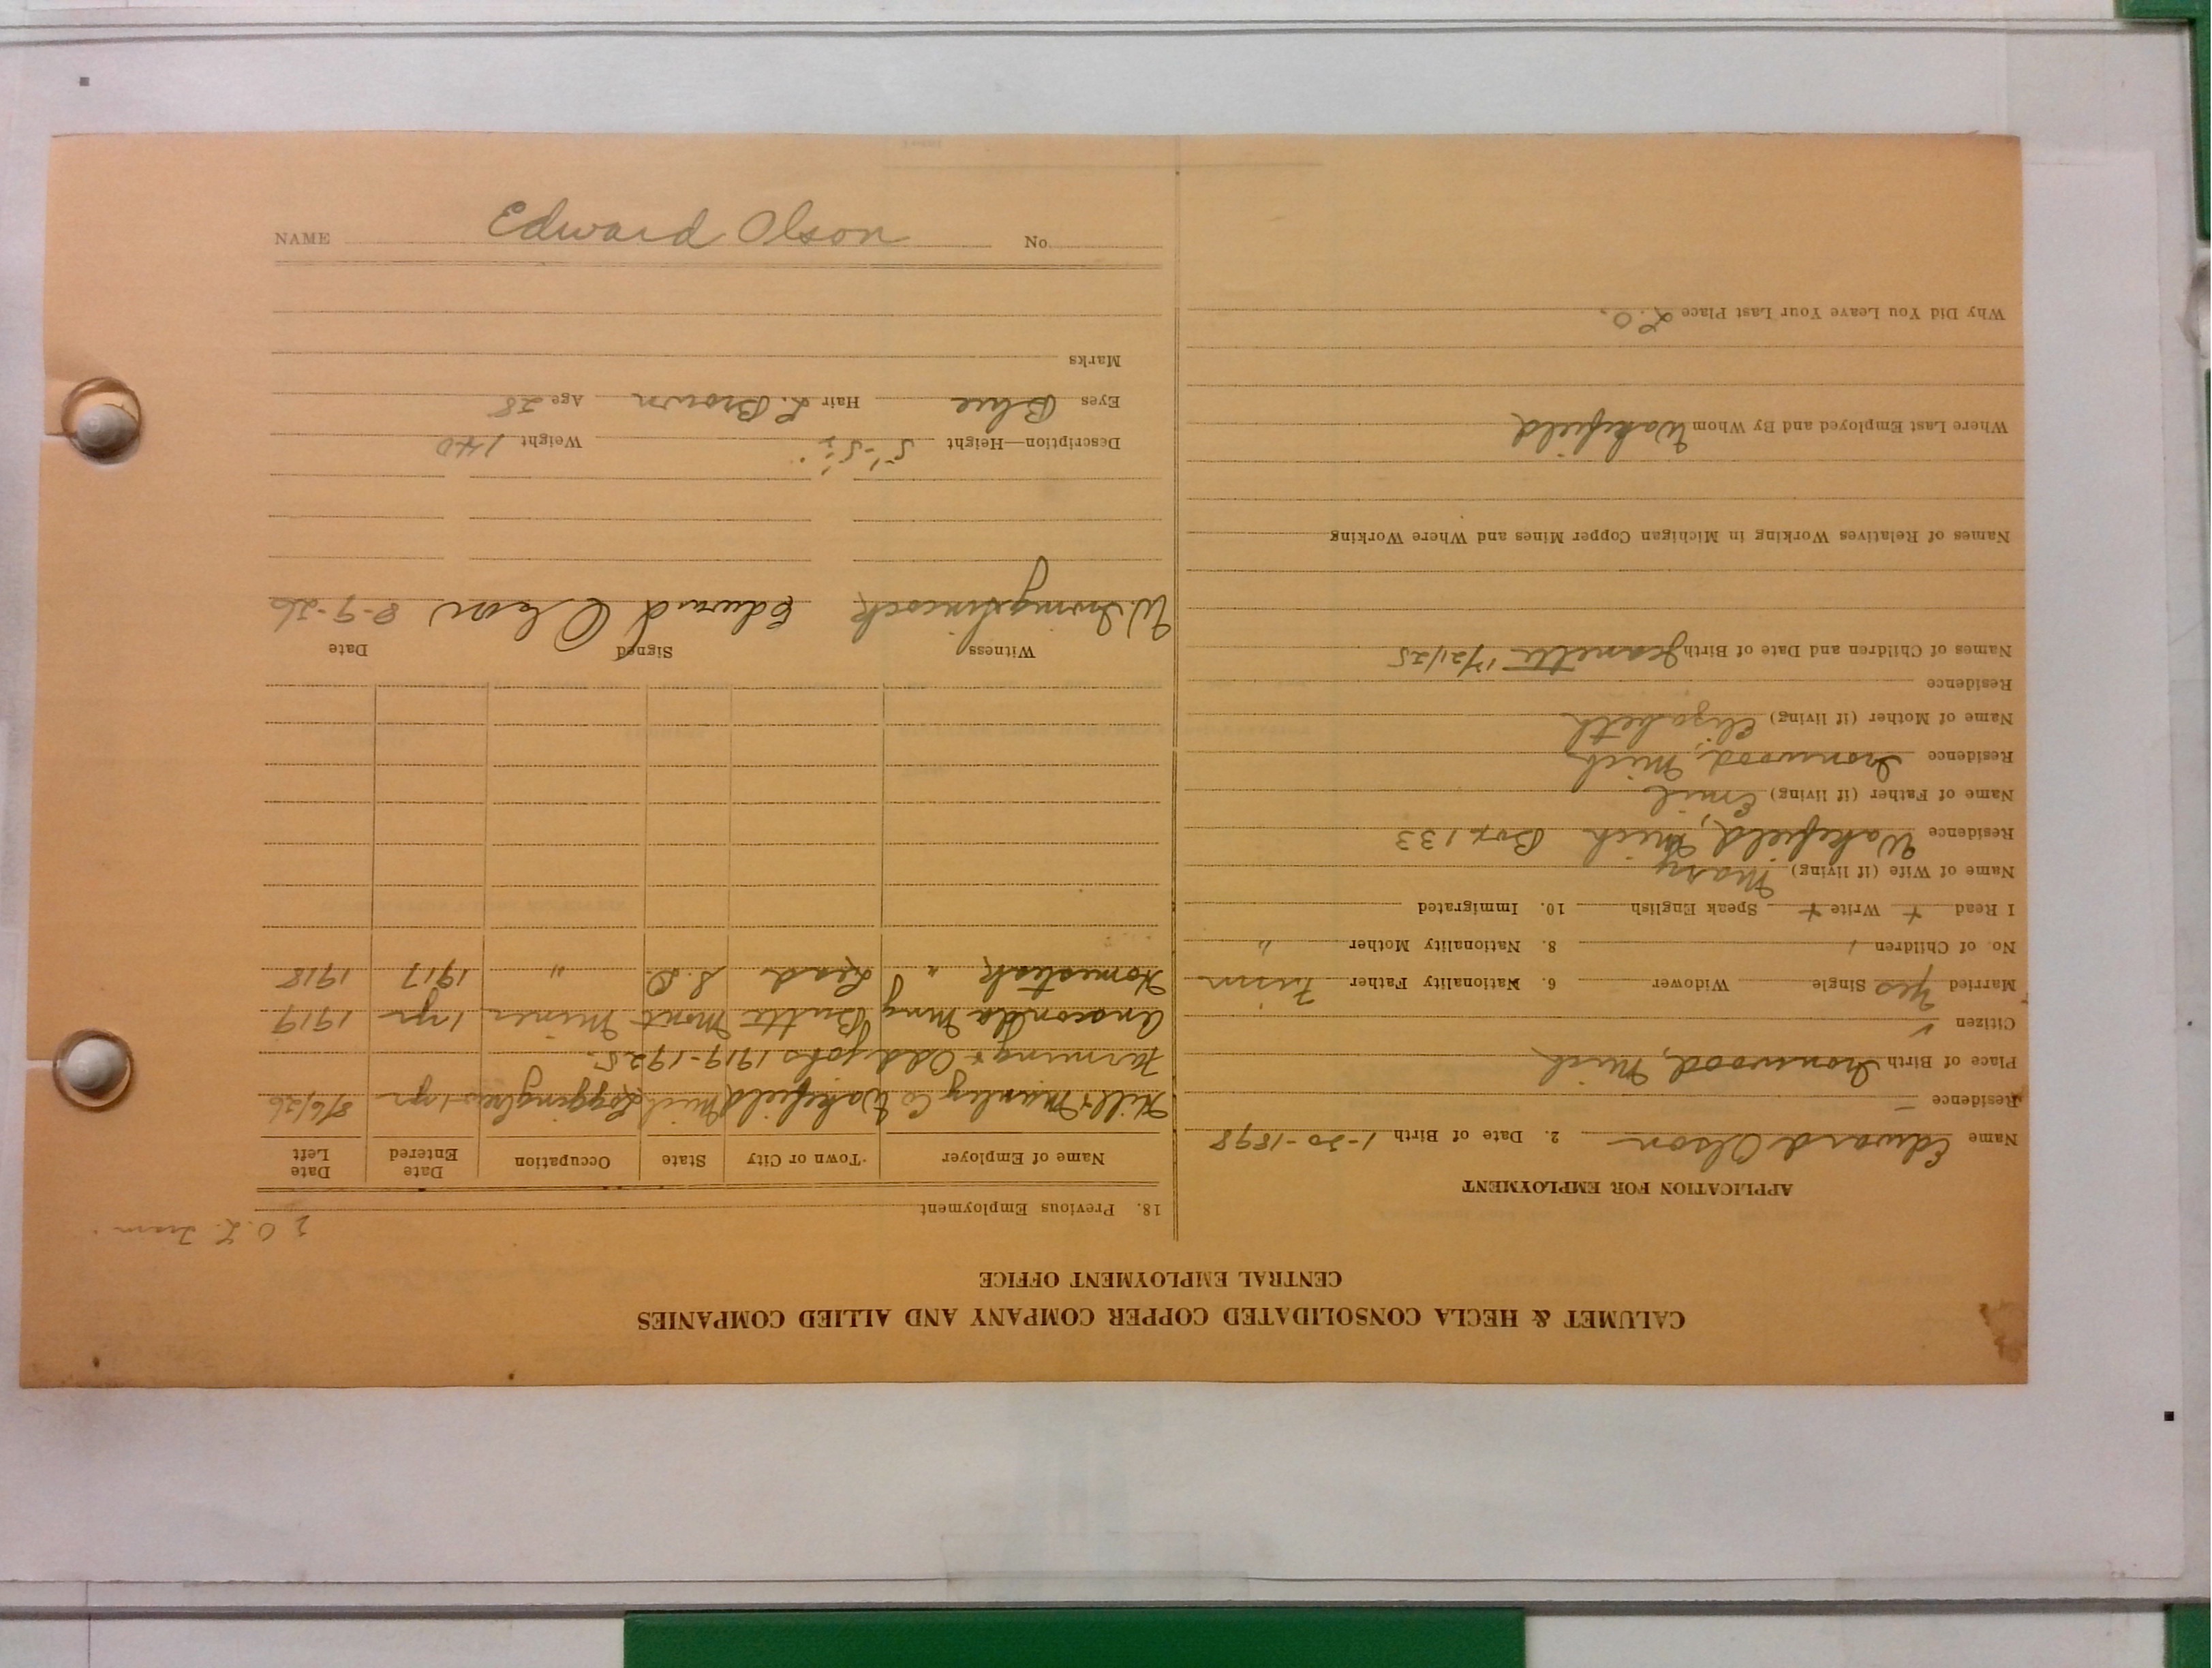 CALUMET & HECLA CONSOLIDATED COPPER COMPANY AND ALLIED COMPANIES
CENTRAL EMPLOYMENT OFFICE
APPLICATION FOR EMPLOYMENT
Name Edward Olson 2. Date of Birth 1-30-1898
Residence —
Place of Birth Ironwood, Mich
Citizen ✓
Married Yes Single Widower 6. Nationality Father Finn
No. of Children 1 8. Nationality Mother "
I Read + Write + Speak English 10. Immigrated
Name of Wife (if living) Mary
Residence Wakefield, Mich Box 133
Name of Father (if living) Emil
Residence Ironwood, Mich
Name of Mother (if living) Elizabeth
Residence
Names of Children and Date of Birth Jeanette
Names of Relatives Working in Michigan Copper Mines and Where Working
Where Last Employed and By Whom Wakefield
Why Did You Leave Your Last Place L.O.
18. Previous Employment
Name of Employer Town or City State Occupation Date Entered Date Left
Co Wakefield Mich Logging 1 yr 8/6/26
Farming & Odd jobs 1919-1925.
Anaconda Mng Butte Mont Miner 1 yr 1919
Homestake " Lead S.D. " 1917 1918
Witness Signed Date
Edward Olson 8-9-26
Description—Height 5'-5½" Weight 140
Eyes Blue Hair L. Brown Age 28
Marks
NAME Edward Olson No.